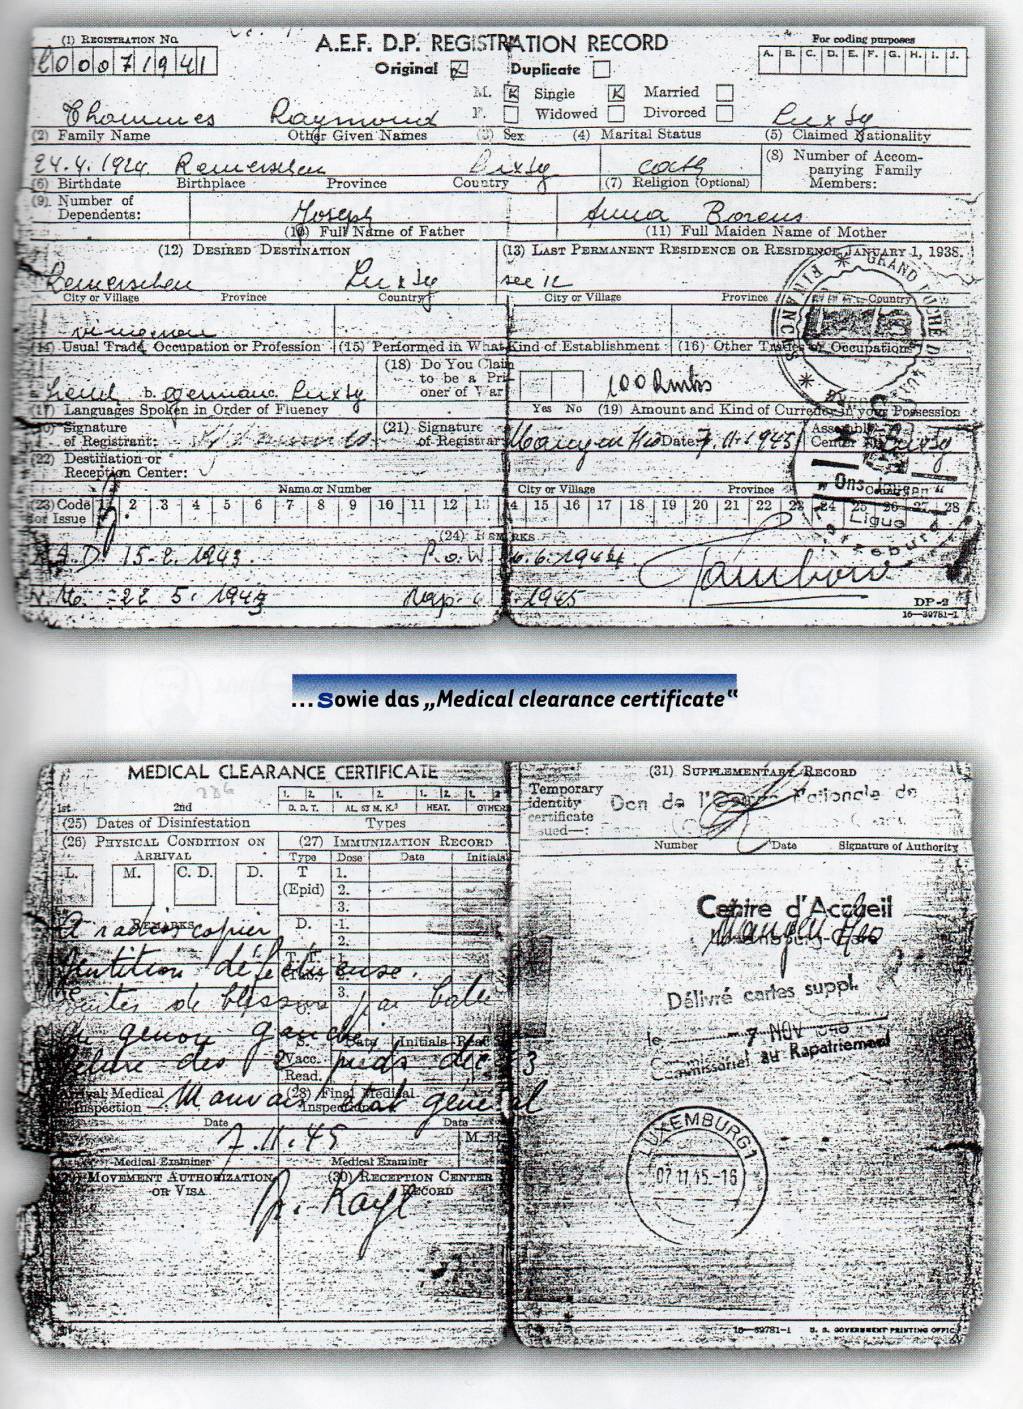 (1) REGISTRATION No.
00071941
A.E.F. D.P. REGISTRATION RECORD
Original Duplicate
For coding purposes
A. B. C. D. E. F. G. H. I. J.
M. Single Married
F. Widowed Divorced
Thommes Raymond Luxbg
(2) Family Name Other Given Names (3) Sex (4) Marital Status (5) Claimed Nationality
24.4.1924 Remerschen Luxbg cath
(6) Birthdate Birthplace Province Country (7) Religion (Optional)
(8) Number of Accom-
panying Family
Members:
(9) Number of
Dependents:
Joseph Anna
(10) Full Name of Father (11) Full Maiden Name of Mother
(12) DESIRED DESTINATION (13) LAST PERMANENT RESIDENCE OR RESIDENCE, JANUARY 1, 1938.
Remerschen Luxbg see 12
City or Village Province Country City or Village Province Country
vigneron
(14) Usual Trade, Occupation or Profession (15) Performed in What Kind of Establishment (16) Other Trades or Occupations
(18) Do You Claim
to be a Pris-
oner of War
Yes No
b. german c. Luxbg
100 Rmks
(17) Languages Spoken in Order of Fluency (19) Amount and Kind of Currency in your Possession
(20) Signature
of Registrant:
(21) Signature
of Registrar
Date: 7.11.1945
Assembly
Center
(22) Destination or
Reception Center:
Name or Number City or Village Province
(23) Code
of Issue
1 2 3 4 5 6 7 8 9 10 11 12 13 14 15 16 17 18 19 20 21 22 23 24 25 26 27 28
(24) REMARKS
R.A.D. 15.2.1943. P.o.W. 6.6.1944
W.M. 22.5.1943 Rap. 1945
Tambow
DP-2
16—39781-1
GRAND DUCHÉ DE LUXEMBOURG
FINANCES
Ligue
"Ons Jongen"
... Sowie das „Medical clearance certificate“
MEDICAL CLEARANCE CERTIFICATE
1st 2nd
1. 2. 1. 2. 1. 2. 1. 2.
D. D. T. AL. 63 M. K.3 HEAT. OTHER
(25) Dates of Disinfestation Types
(26) PHYSICAL CONDITION ON
ARRIVAL
L. M. C. D. D.
REMARKS
(27) IMMUNIZATION RECORD
Type Dose Date Initials
T
(Epid)
1.
2.
3.
D. 1.
2.
3.
S. Date Initials React
Vacc.
Read.
A radioscopier
Dentition défectueuse.
de blessure par balle
du genou gauche
Gelure des 2 pieds déc 43
Mauvais état général
Arrival Medical
Inspection —:
(28) Final Medical
Inspection
Date Date
7.11.45
M.
Medical Examiner Medical Examiner
(29) MOVEMENT AUTHORIZATION
OR VISA
(30) RECEPTION CENTER
RECORD
(31) SUPPLEMENTARY RECORD
Temporary
identity
certificate
issued—:
Don de l'
Nationale de
Number Date Signature of Authority
Centre d'Accueil
Luxembourg-Gare
Délivré cartes suppl.
le 7 NOV 1945
Commissariat au Rapatriement
LUXEMBURG 1
07.11.45.-16
16—39781-1 U. S. GOVERNMENT PRINTING OFFICE